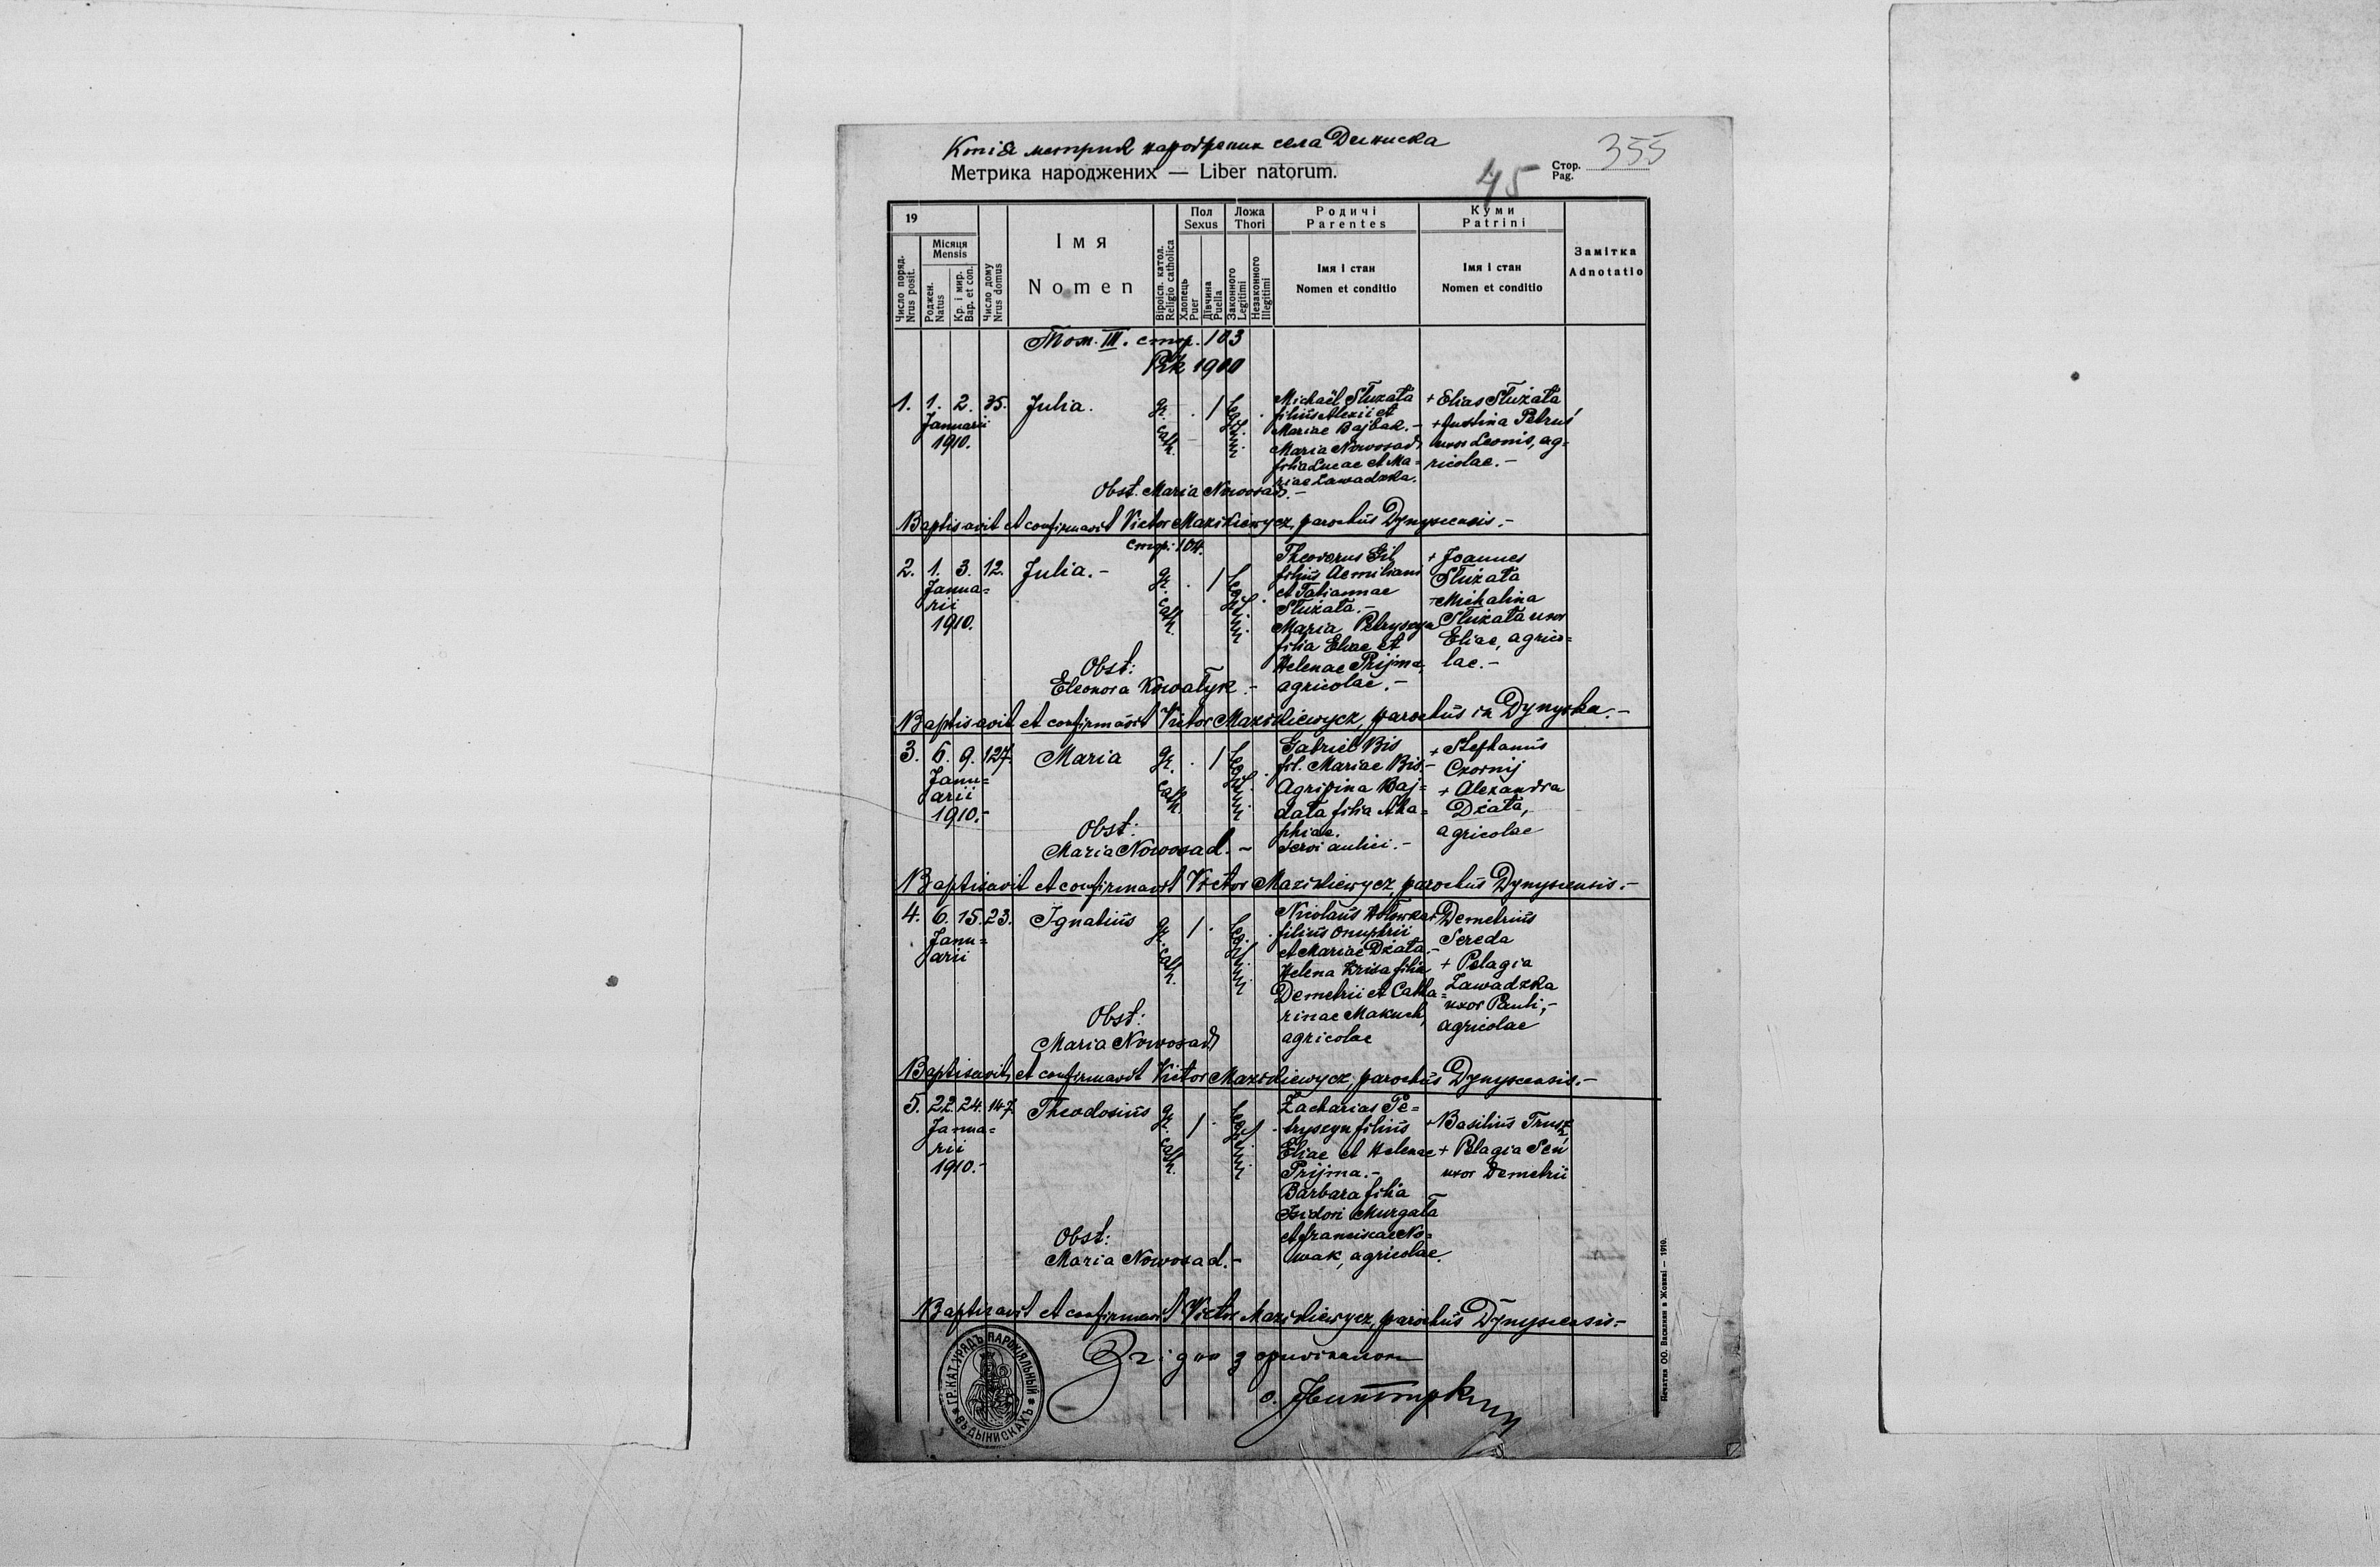 Копія метрик народжених села Дениска
Метрика народжених — Liber natorum.
45
Стор.
Pag.
355
19
Число поряд.
Nrus posit.
Місяця
Mensis
Роджен.
Natus
Кр. і мир.
Bap. et con.
Число дому
Nrus domus
Імя
Nomen
Віроісп. катол.
Religio catholica
Пол
Sexus
Хлопець
Puer
Дівчина
Puella
Ложа
Thori
Законного
Legitimi
Незаконного
Illegitimi
Родичі
Parentes
Імя і стан
Nomen et conditio
Куми
Patrini
Імя і стан
Nomen et conditio
Замітка
Adnotatio
Том. III. стор. 103
Рік 1910
1. 1. 2. 35. Julia.
Januarii
1910.
gr.
cath.
1
Legitimi
Michaël Služata
filius Alexii et
Mariae Bajbak.-
Maria Nowosad
filia Lucae et Ma=
riae Zawadzka.
+ Elias Służata
+ Justina Petruś
uxor Leonis, ag=
ricolae.-
Obst. Maria Nowosad.-
Baptisavit et confirmavit Victor Mazikiewycz, parochus Dynyscensis.-
стор. 104.
2. 1. 3. 12. Julia.-
Janua=
rii
1910.
gr.
cath.
1
Legitimi
Theodorus Gil
filius Aemiliani
et Tatiannae
Służata.-
Maria Petryszyn
filia Eliae et
Helenae Prijma,
agricolae.-
+ Joannes
Służata
+ Michalina
Służata uxor
Eliae, agrico=
lae.-
Obst:
Eleonora Kowalyk.-
Baptisavit et confirmavit Victor Mazikiewycz, parochus in Dynyska.-
3. 6. 9. 127. Maria
Janu=
arii
1910.-
gr.
cath.
1
Legitimi
Gabriel Bis
fil. Mariae Bis.-
Agripina Baj=
data filia Aha=
phiae.
servi aulici.-
+ Stephanus
Czornij
+ Alexandra
Dżata,
agricolae
Obst:
Maria Nowosad.-
Baptisavit et confirmavit Victor Mazikiewycz, parochus Dynyscensis.-
4. 6. 15. 23. Ignatius
Janu=
arii
gr.
cath.
1
Legitimi
Nicolaus
filius Onuphrii
et Mariae Dżata.-
Helena filia
Demetrii et Catha=
rinae Makuch,
agricolae
Demetrius
Sereda
+ Pelagia
Zawadzka
uxor Pauli,-
agricolae
Obst:
Maria Nowosad
Baptisavit et confirmavit Victor Mazikiewycz, parochus Dynyscensis.-
5. 22. 24. 147. Theodosius
Janua=
rii
1910.-
gr.
cath.
1
Legitimi
Zacharias Pe=
tryszyn filius
Eliae et Helenae
Prijma.-
Barbara filia
Isidori Murgała
et Franciscae No=
wak, agricolae.
+ Basilius Trusz
+ Pelagia Seń
uxor Demetrii
Obst:
Maria Nowosad.-
Baptisavit et confirmavit Victor Mazikiewycz, parochus Dynyscensis.-
Згідно з оригіналом
о.
ГР. КАТ. УРЯДЪ ПАРОХІЯЛЬНЫЙ
ВЪ ДЫНИСКАХЪ
Печатня ОО. Василиян в Жовкві — 1910.